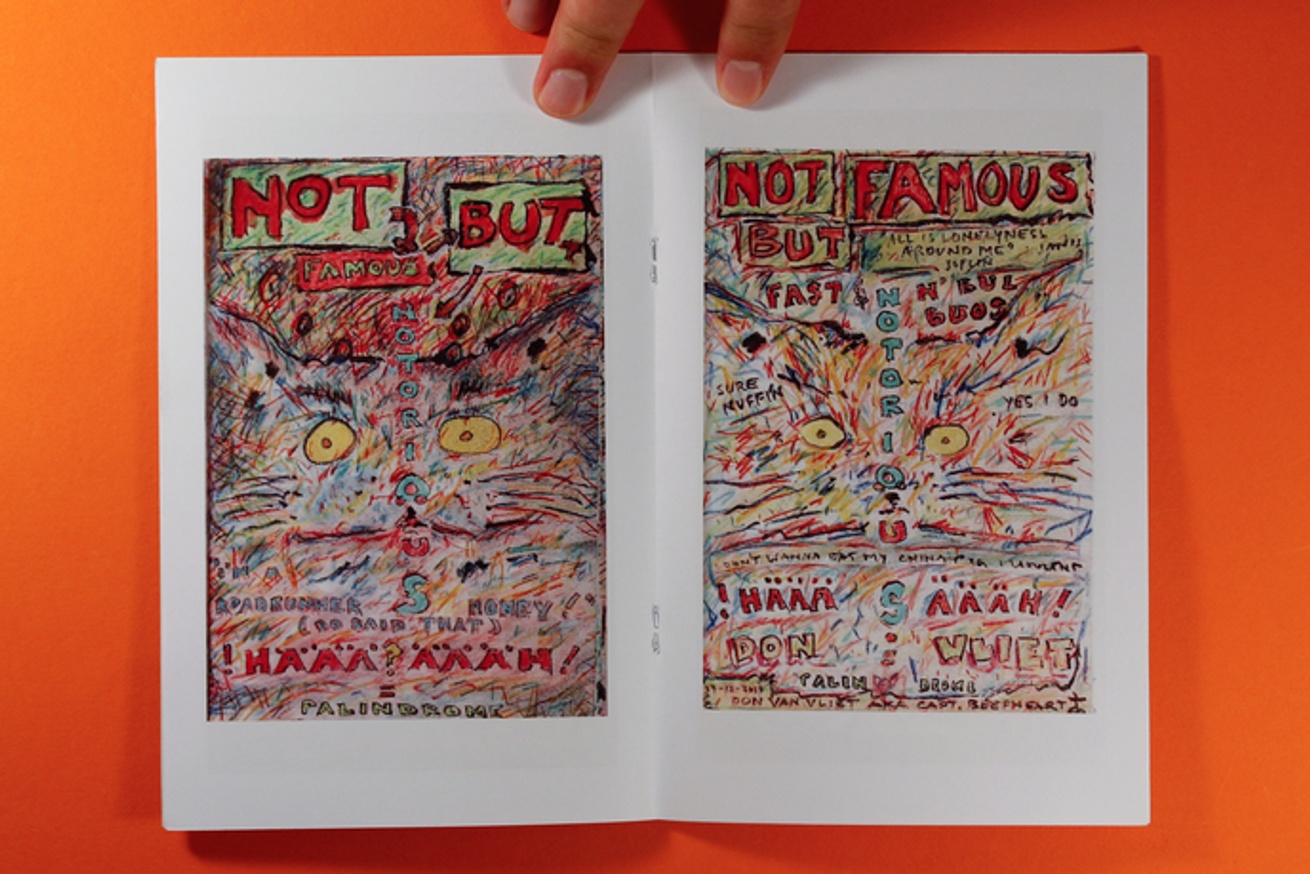 NOT
BUT
FAMOUS
NOTORIOUS
I'M A
ROADRUNNER HONEY!
(BO SAID THAT)
!HÄÄÄ?ÄÄÄH!
=
PALINDROME
NOT FAMOUS
BUT
"ALL IS LONELYNESS
AROUND ME"
FAST & N' BUL
BUOS
NOTORIOUS
SURE
NUFFIN
YES I DO
DON'T WANNA EAT MY
!HÄÄÄ ÄÄÄH!
DON VLIET
PALIN DROME
DON VAN VLIET AKA CAPT. BEEFHEART